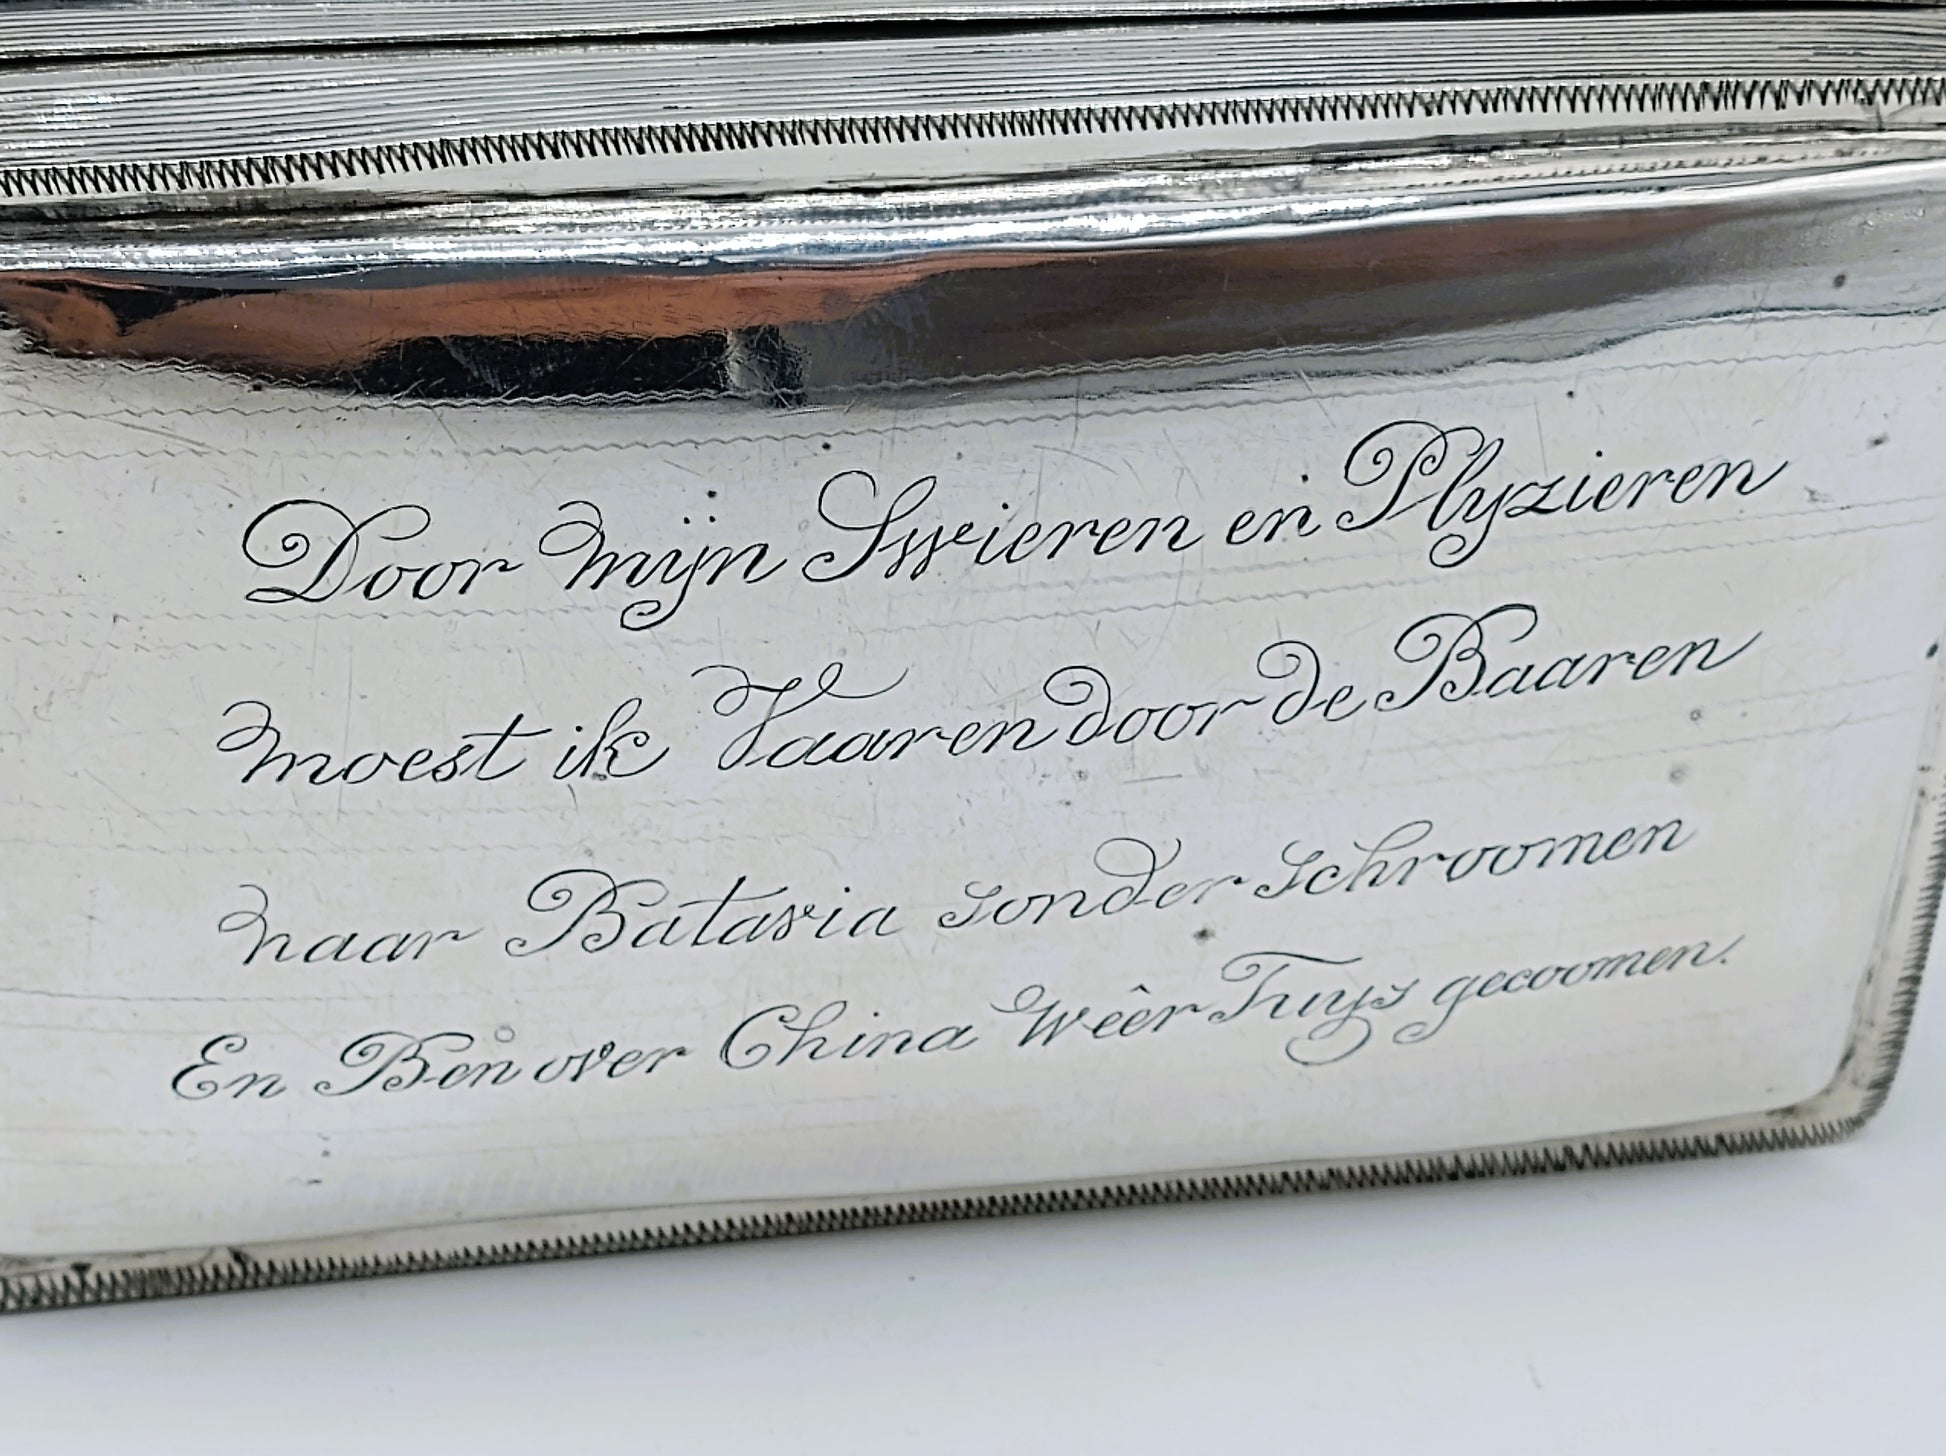 Door mijn Swieren en Plyzieren
moest ik Vaaren door de Baaren
naar Batavia sonder schroomen
En Ben over China wêêr Tuys gecoomen.